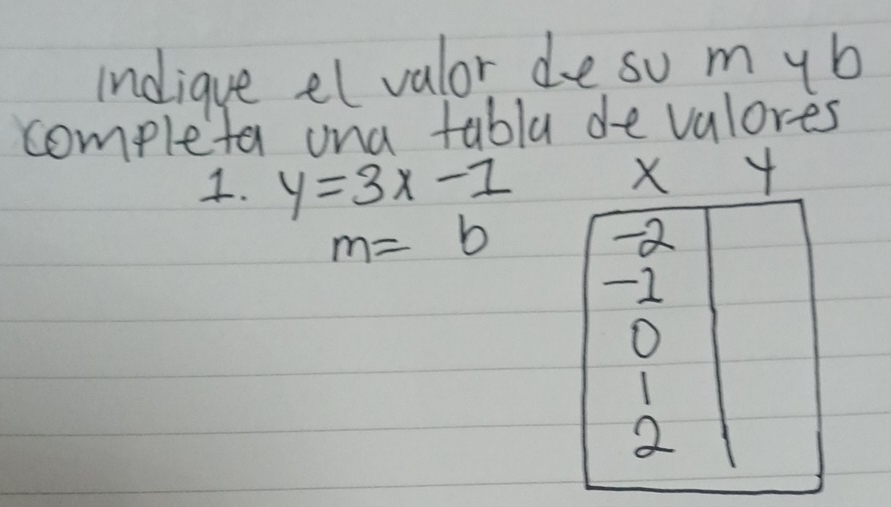 indique el valor de su m y b
completa una tabla de valores
1. y=3x-1 x y
m= b -2
-1
0
1
2